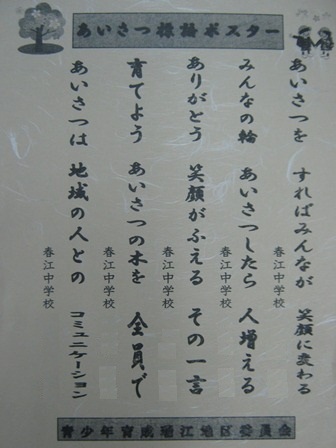 あいさつ標語ポスター
あいさつを すればみんなが 笑顔に変わる
春江中学校
みんなの輪 あいさつしたら 人増える
春江中学校
ありがとう 笑顔がふえる その一言
春江中学校
育てよう あいさつの木を 全員で
春江中学校
あいさつは 地域の人との コミュニケーション
春江中学校
青少年育成瑞江地区委員会